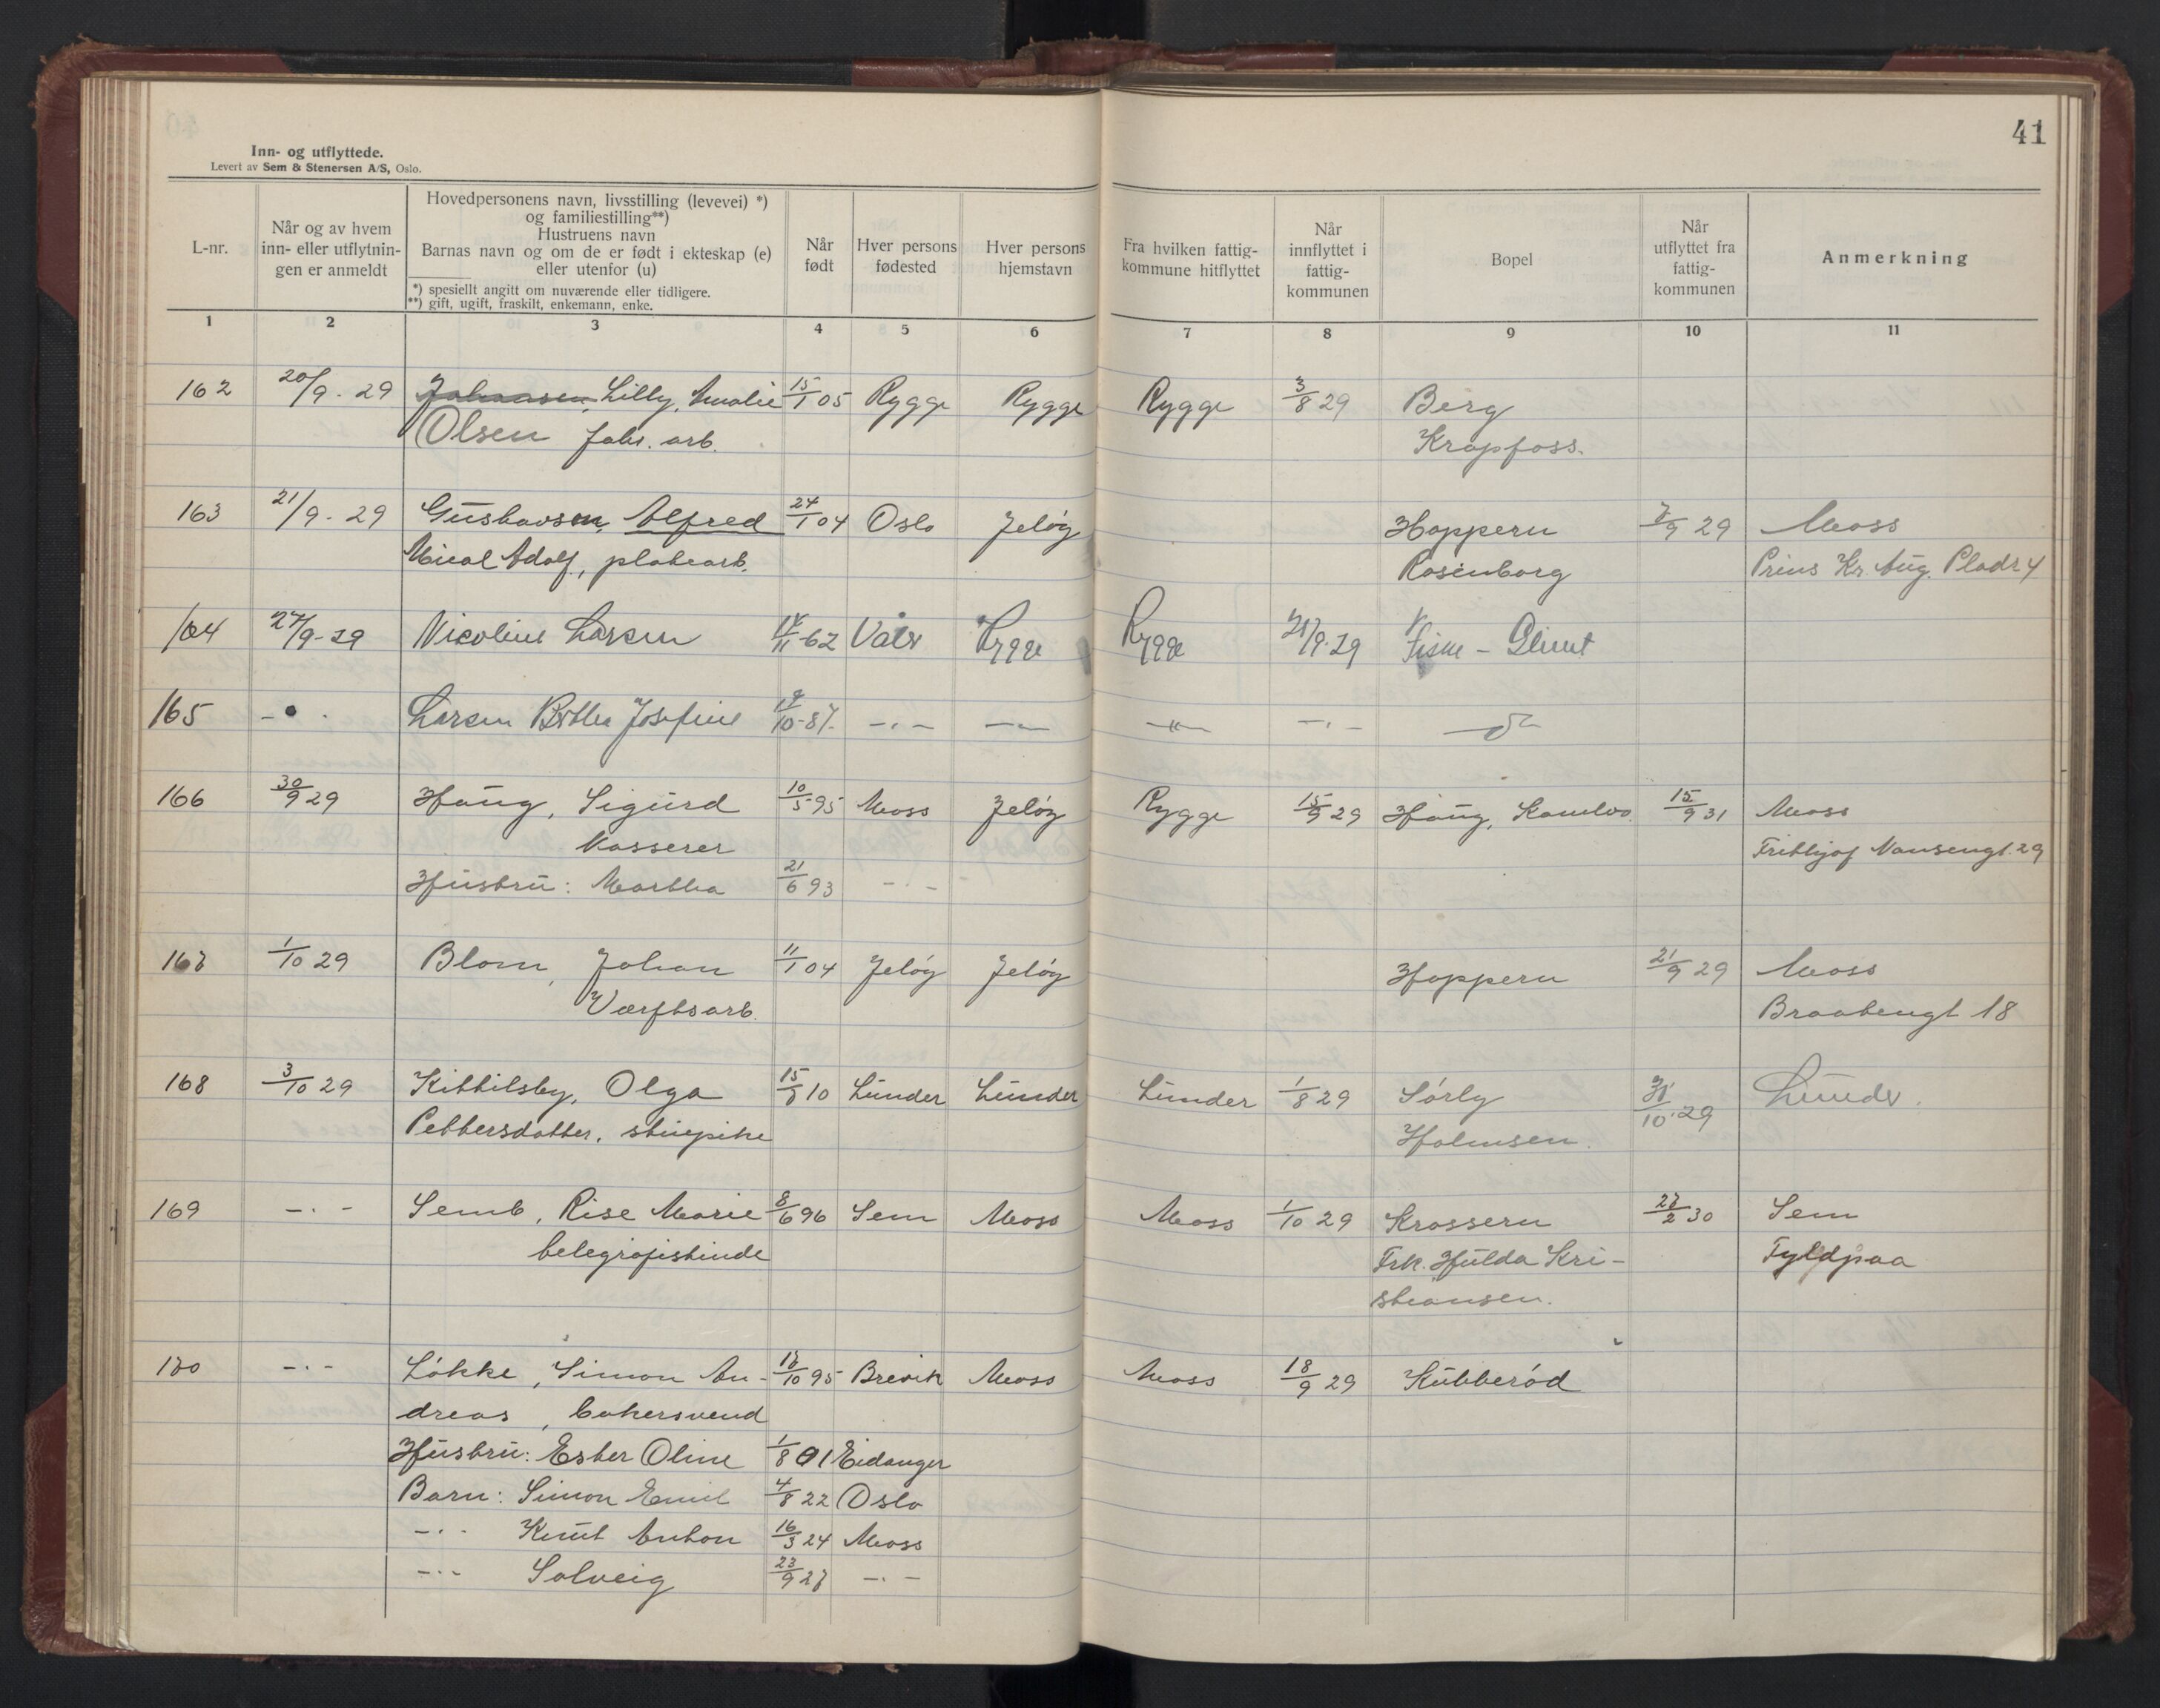 41
Inn- og utflyttede.
Levert av Sem & Stenersen A/S, Oslo.
L-nr.
Når og av hvem inn- eller utflytnin- gen er anmeldt
Hovedpersonens navn, livsstilling (levevei) *)
og familiestilling**)
Hustruens navn
Barnas navn og om de er født i ekteskap (e)
eller utenfor (u)
*) spesiellt angitt om nuværende eller tidligere.
**) gift, ugift, fraskilt, enkemann, enke.
Når født
Hver persons fødested
Hver persons hjemstavn
Fra hvilken fattig- kommune hitflyttet
Når innflyttet i fattig- kommunen
Bopel
Når utflyttet fra fattig- kommunen
Anmerkning
1 2 3 4 5 6 7 8 9 10 11
162 20/9 - 29 Johansen, Lilly, Amalie 15/1 05 Rygge Rygge Rygge 3/8 29 Berg
Olsen fabr. arb. Krapfoss.
163 21/9 - 29 Gustavsen, Alfred 24/1 04 Oslo Jeløy Hoppern 7/9 29 Moss
Mical Adolf, platearb. Rosenborg Prins Kr. Aug. Plads 4
164 27/9-29 Nicoline Larsen 62 Våler Rygge Rygge /9.29 Glimt
165 - " - Larsen Bertha Josefine /10-87. - " - - " - - " - - " - - " -
166 30/9 29 Haug, Sigurd 10/5 95 Moss Jeløy Rygge 15/9 29 Haug, Kambo. 15/9 31 Moss
Kasserer Frithjof Nansengt. 29
Hustru: Martha 21/6 93 - " -
167 1/10 29 Blom, Johan 11/1 04 Jeløy Jeløy Hoppern 21/9 29 Moss
Værftsarb. Braatengt 18
168 3/10 29 Kittilsby, Olga 15/7 10 Lunder Lunder Lunder 1/8 29 Sørby 31/10.29 Lunder.
Pettersdatter, stuepike Holmsen.
169 - " - Semb, Rise Marie 8/6 96 Sem Moss Moss 1/10 29 Krossern 27/2 30 Sem
telegrafistinde Frk. Hulda Kri- Fyldpaa
stiansen.
170 - " - Løkke, Simon An- 17/10 95 Brevik Moss Moss 18/9 29 Kubberød
dreas, bakersvend
Hustru: Ester Oline 1/8 01 Eidanger
Barn: Simon Emil 4/8 22 Oslo
- " - Knut Anton 16/3 24 Moss
- " - Solveig 23/9 27 - " -